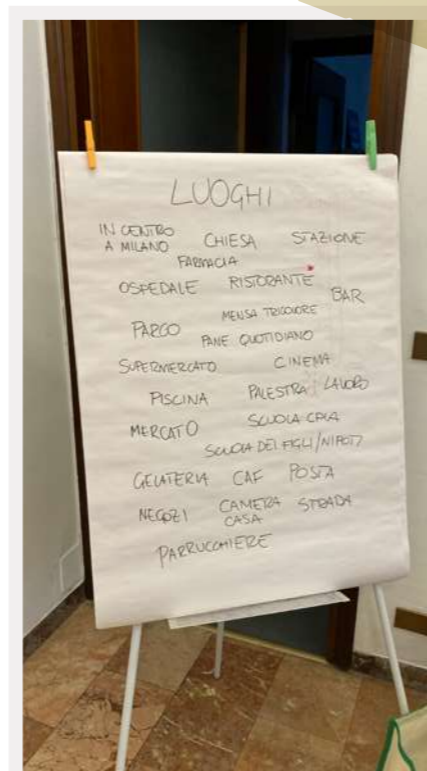 LUOGHI
IN CENTRO A MILANO
CHIESA
STAZIONE
FARMACIA
OSPEDALE
RISTORANTE
BAR
MENSA TRICOLORE
PARCO
PANE QUOTIDIANO
SUPERMERCATO
CINEMA
PISCINA
PALESTRA
LAVORO
MERCATO
SCUOLA CPIA
SCUOLA DEI FIGLI/NIPOTI
GELATERIA
CAF
POSTA
NEGOZI
CAMERA
CASA
STRADA
PARRUCCHIERE